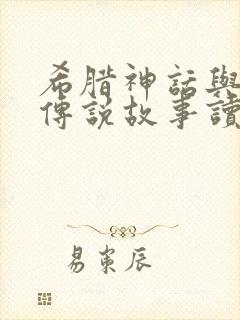 希腊神話與
傳說故事讀
易東辰